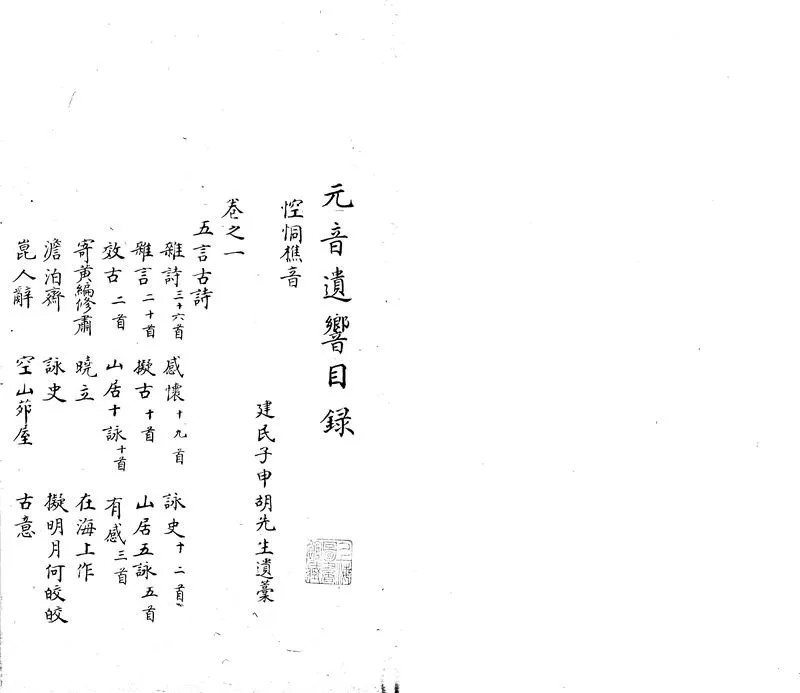 元音遺響目録
悾恫樵音
建民子申胡先生遺藁
卷之一
五言古詩
雜詩三十六首 感懷十九首 詠史十二首
雜言二十首 擬古十首 山居五詠五首
效古二首 山居十詠十首 有感三首
寄黃編修肅 曉立 在海上作
澹泊齊 詠史 擬明月何皎皎
崑人辭 空山茆屋 古意